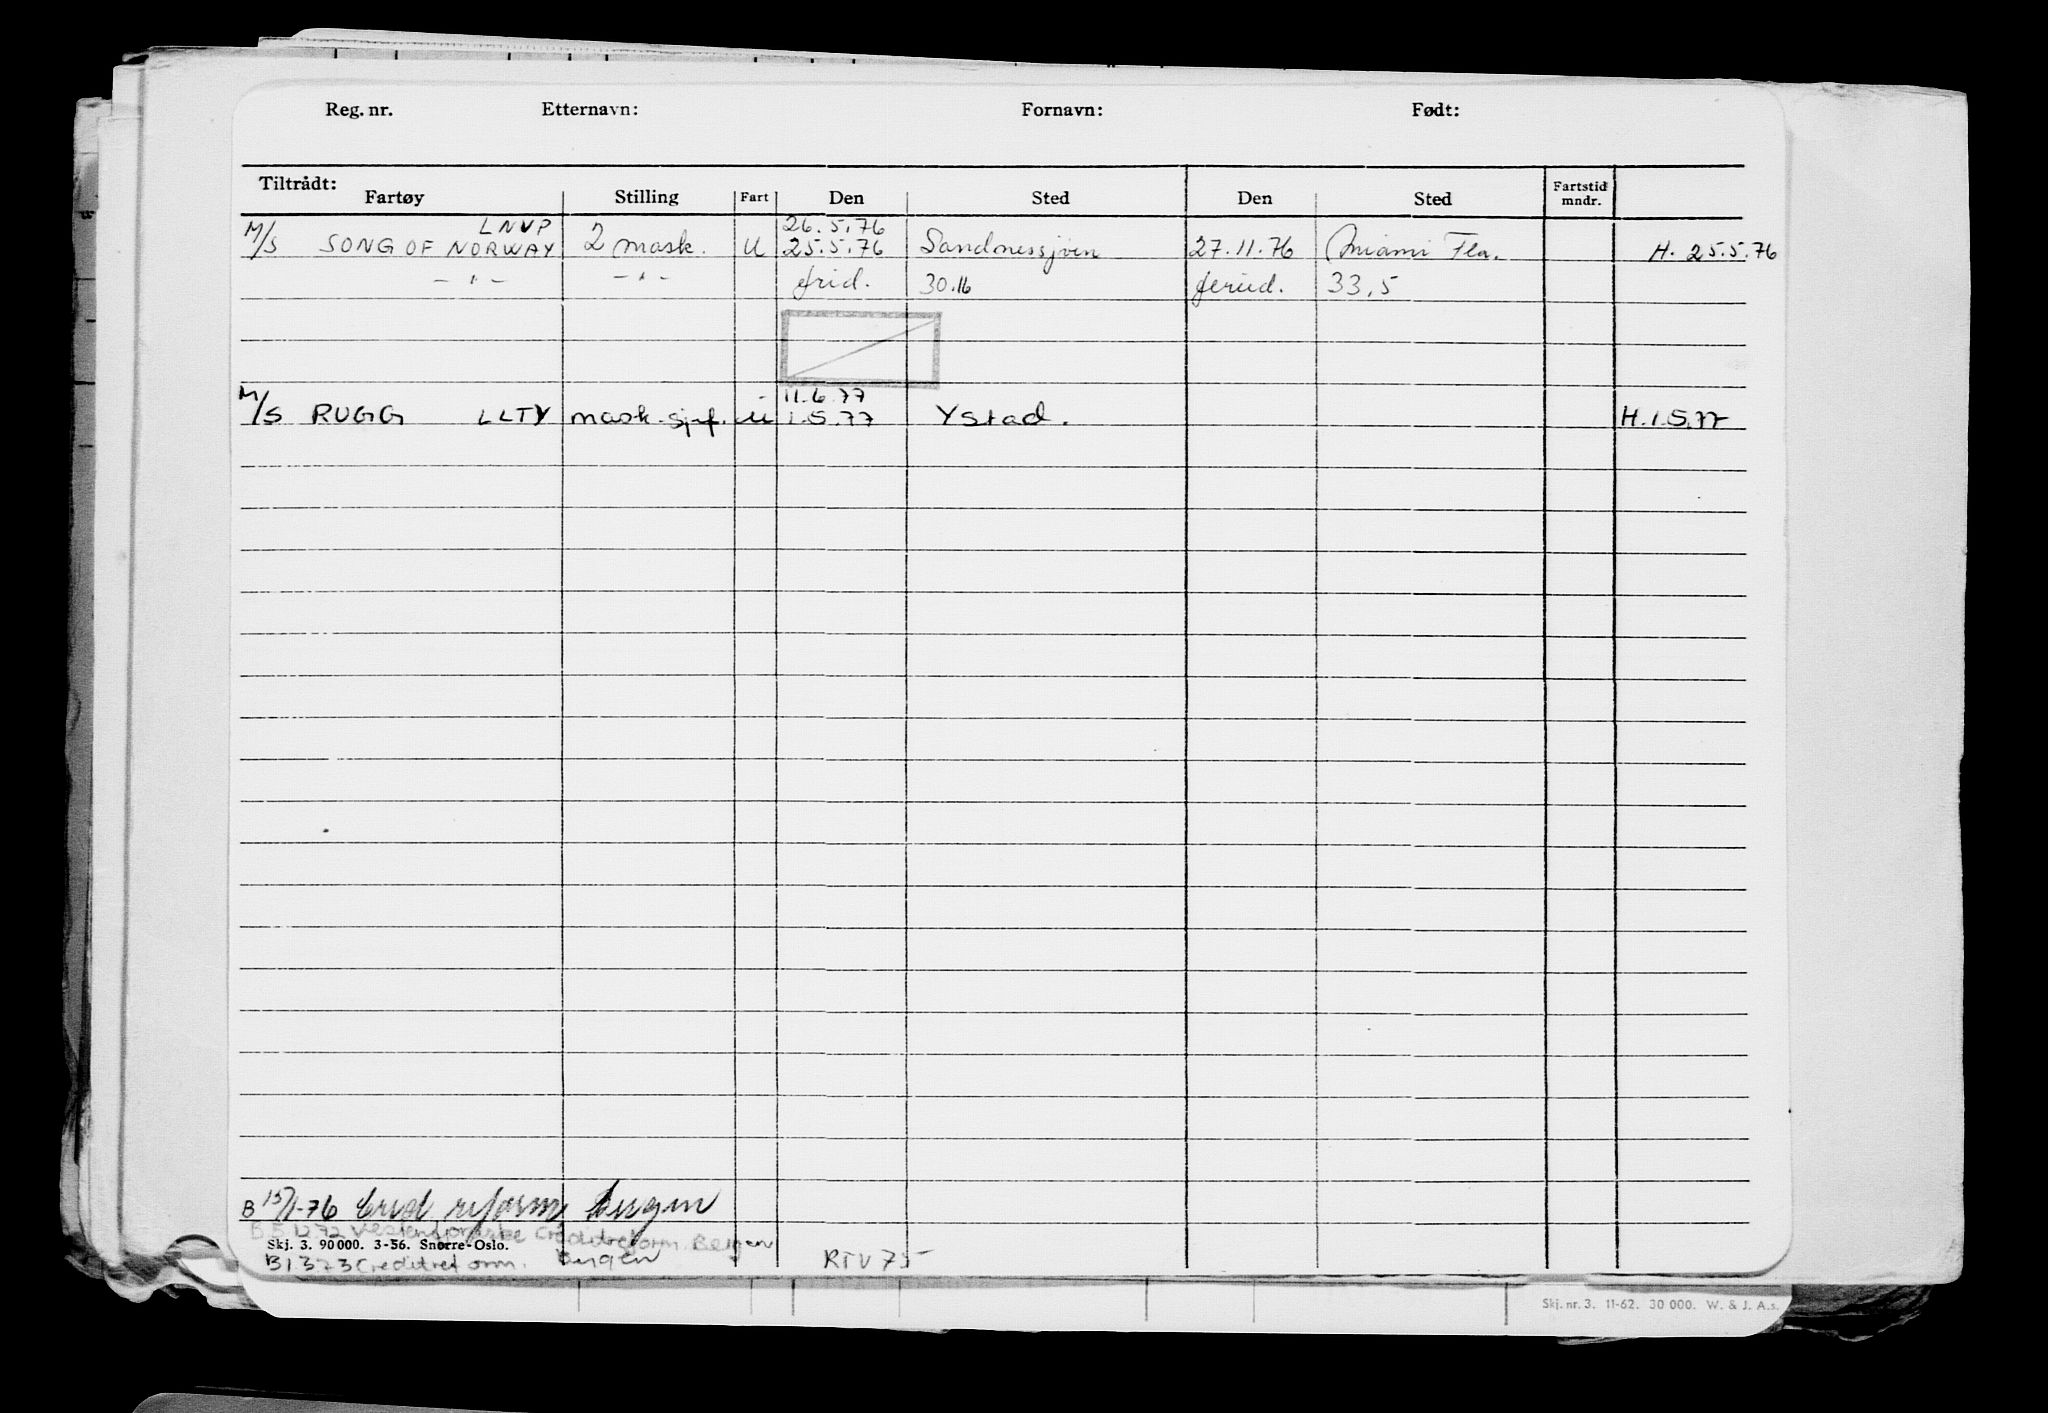 Reg. nr. Etternavn: Fornavn: Født:
Tiltrådt:
Fartøy Stilling Fart Den Sted Den Sted Fartstid mndr.
LNVP 26.5.76
M/S SONG OF NORWAY 2 mask. U 25.5.76 Sandnessjøen 27.11.76 Miami Fla. H. 25.5.76
— " — — " — frid. 30.16 feried. 33,5
11.6.77
M/S RUGG LLTY mask.sjef. U 1.5.77 Ystad. H.1.5.77
B 15/1-76 Cred reform Bergen
Creditreform. Bergen
Skj. 3. 90 000. 3-56. Snorre-Oslo.
B 1373 Creditreform. Bergen RTV 75
Skj. nr. 3. 11-62. 30 000. W. & J. A.s.